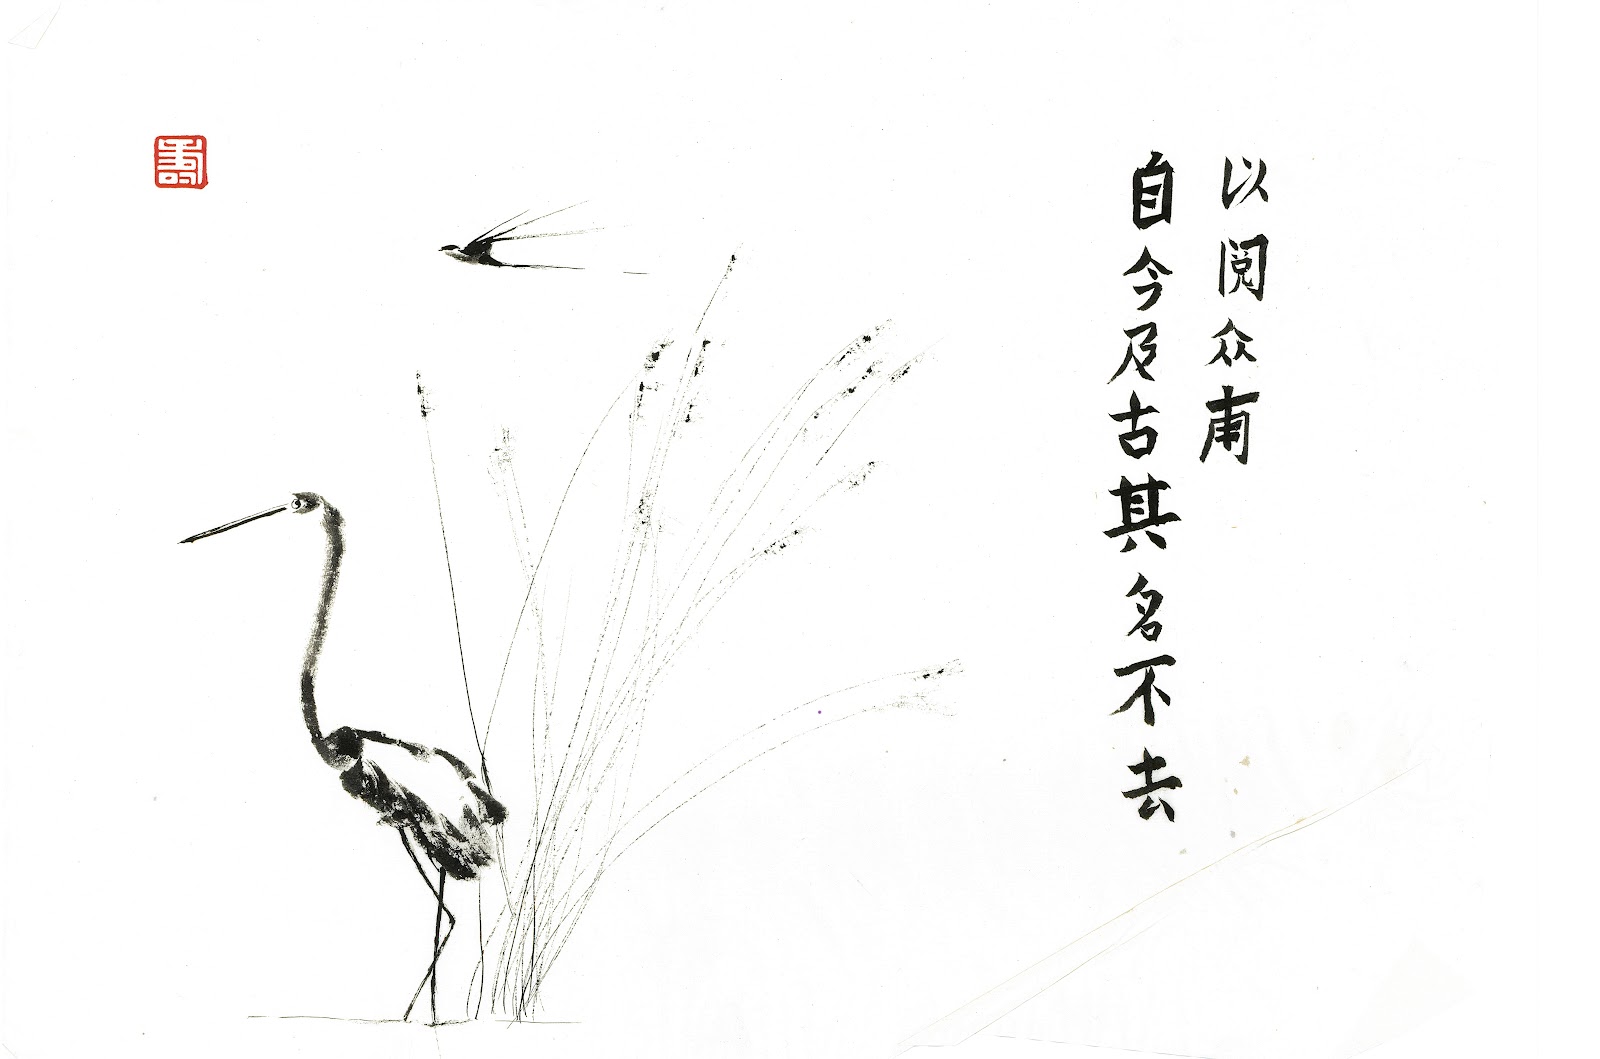 自今及古其名不去
以阅众甫
壽